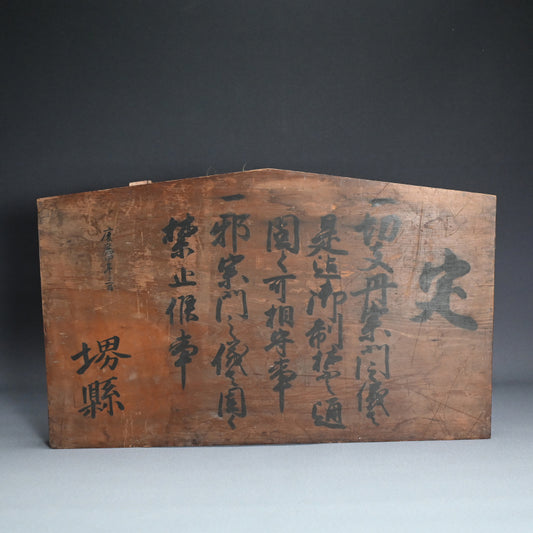 定
一切支丹宗門之儀ハ
是迄御制禁之通
固く可相守事
一邪宗門之儀ハ固く
禁止候事
年 月
堺縣